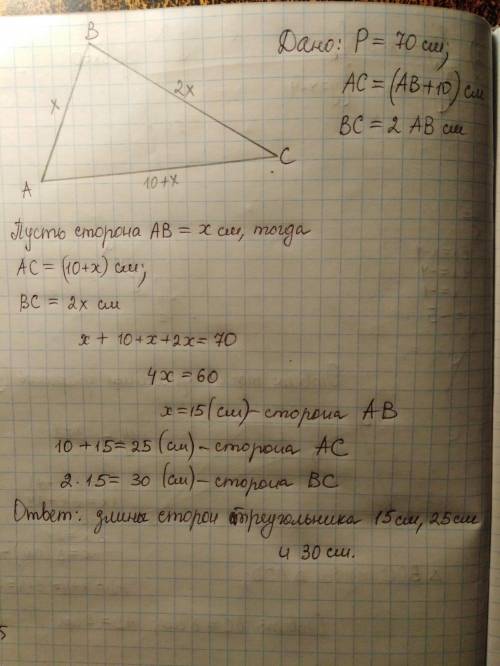 B
Дано: P = 70 см;
x
2x
AC = (AB+10) см
BC = 2 AB см
C
A
10+x
Пусть сторона AB = x см, тогда
AC = (10+x) см;
BC = 2x см
x + 10+x+2x=70
4x = 60
x=15(см)-сторона AB
10 +15=25 (см)-сторона AC
2·15= 30 (см)-сторона BC
Ответ: длины сторон треугольника 15см, 25см
и 30 см.
5